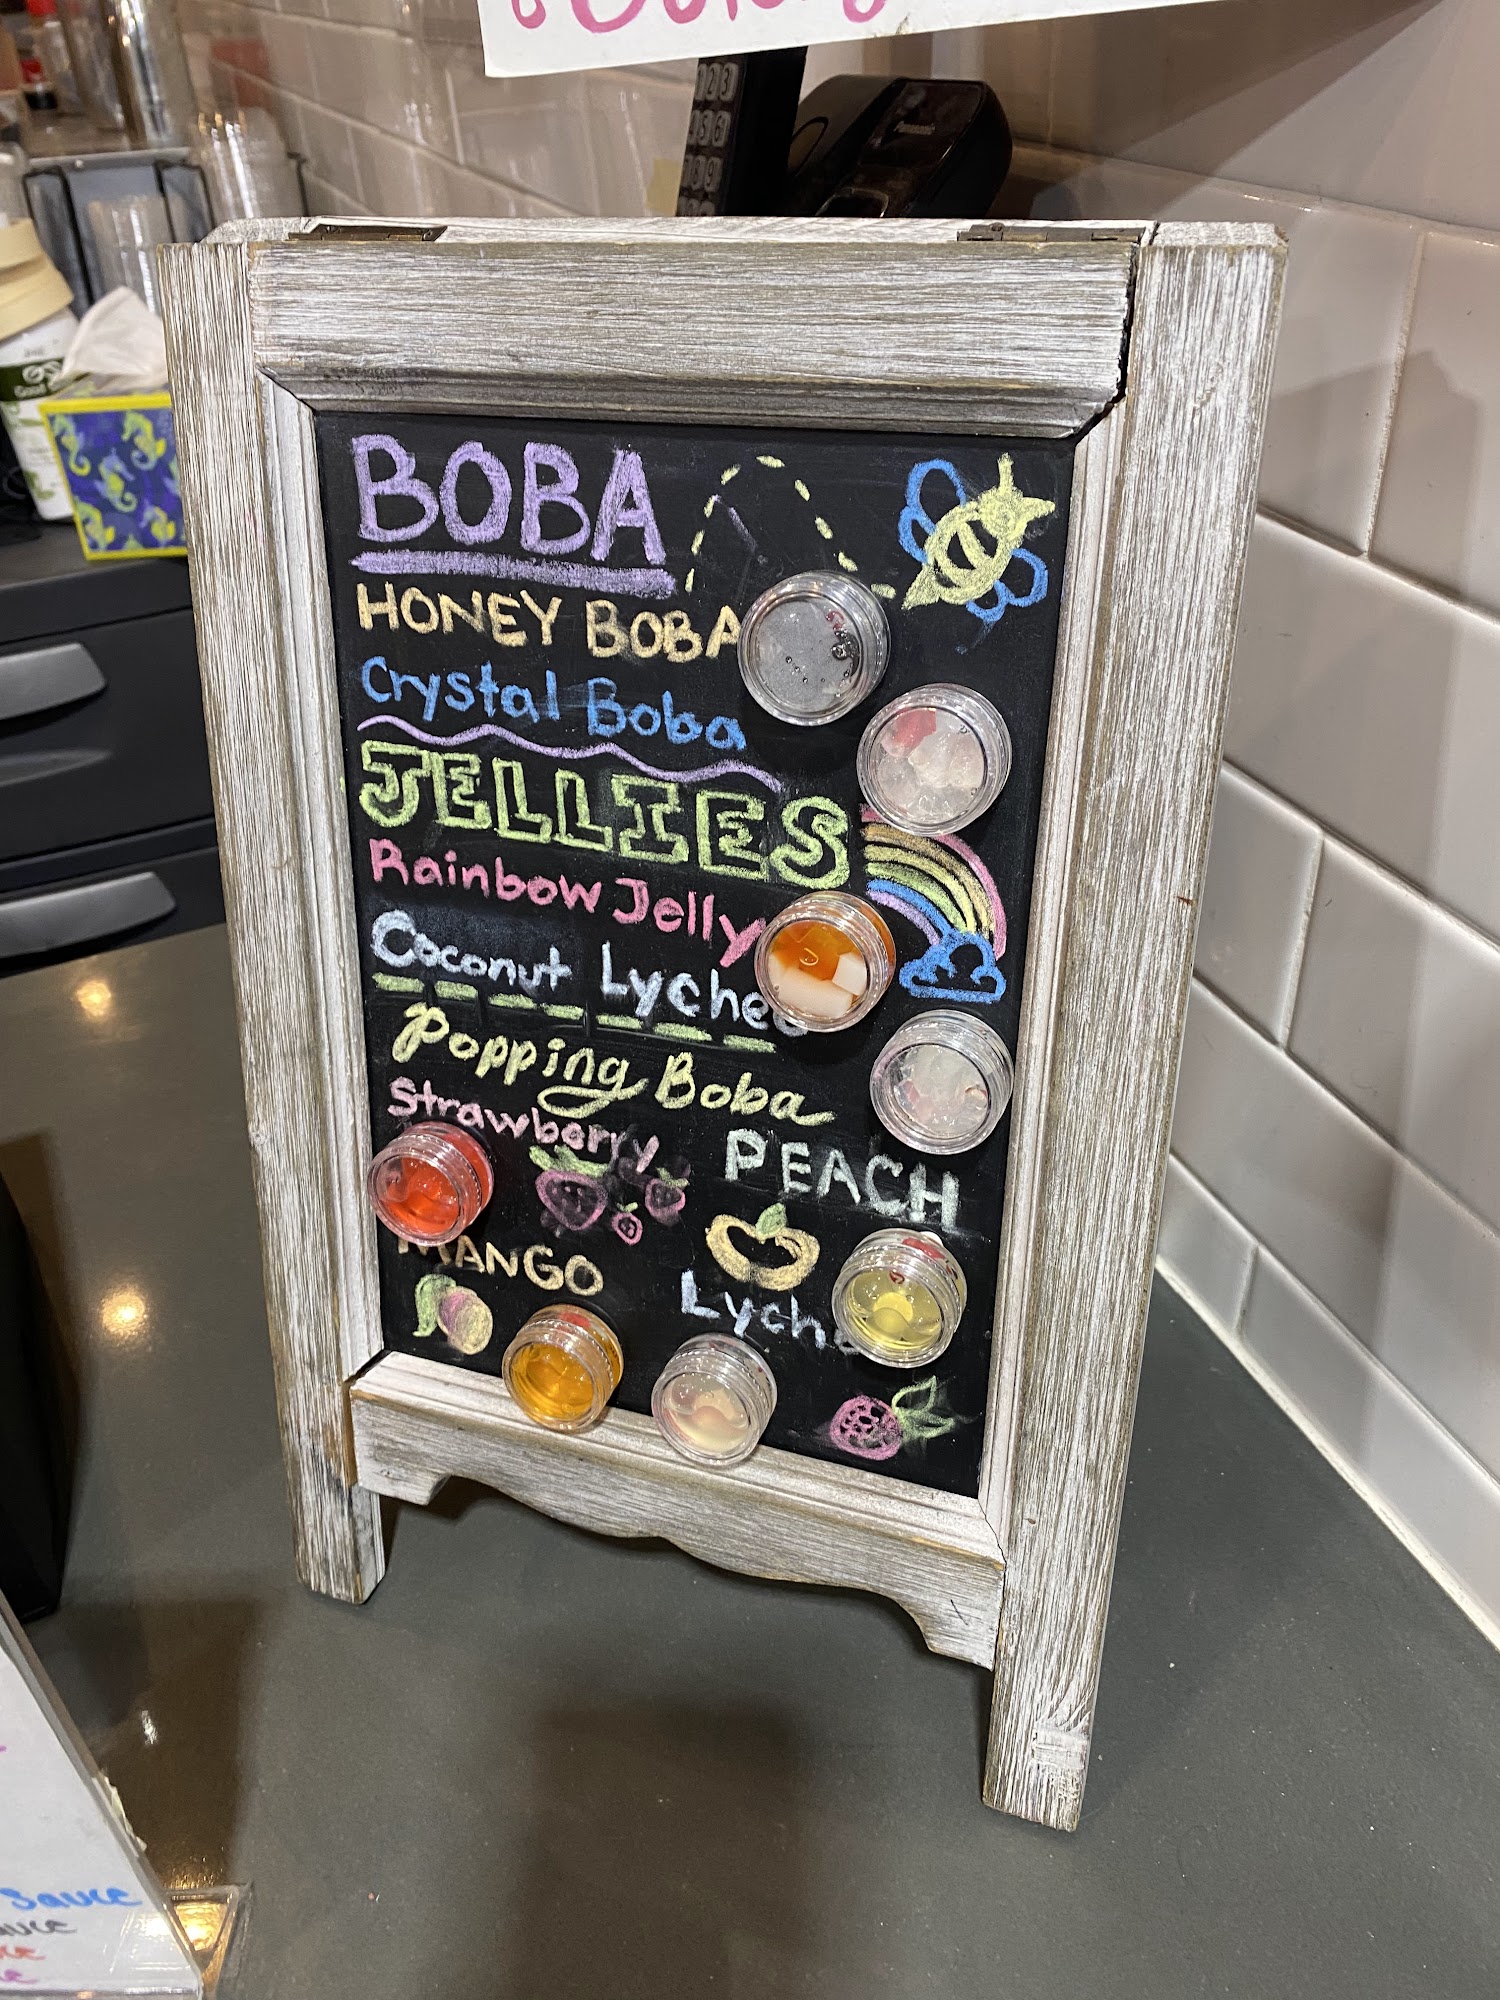 BOBA
HONEY BOBA
Crystal Boba
JELLIES
Rainbow Jelly
Coconut Lychee
Popping Boba
Strawberry
PEACH
MANGO
Lyche
Panasonic
Sauce